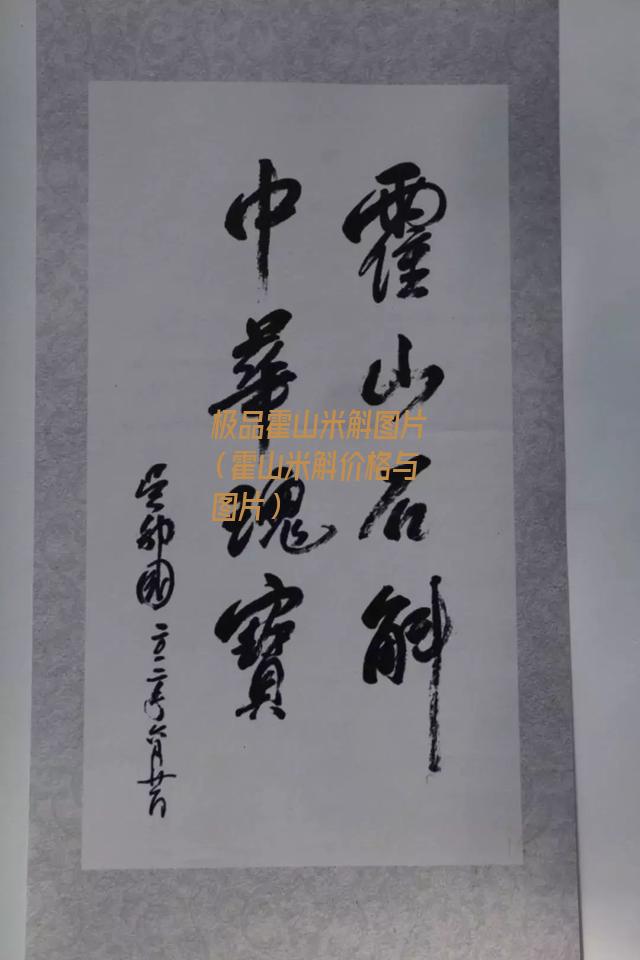 霍山石斛
中華瑰寶
吴邦國
二〇一二年六月廿一日
极品霍山米斛图片
（霍山米斛价格与
图片）